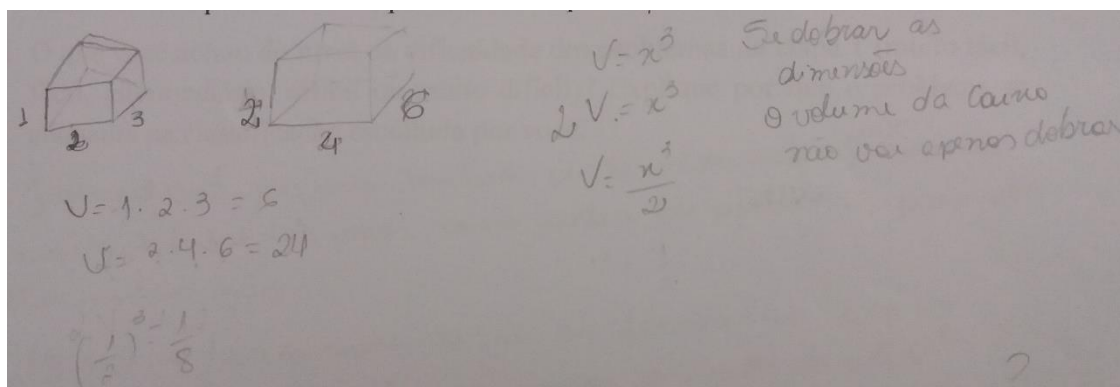 1
2
3
2
4
6
V = 1 . 2 . 3 = 6
V = 2 . 4 . 6 = 24
(1/2)^3 = 1/8
V = x^3
2 V = x^3
V = x^3/2
Se dobrar as
dimensões
O volume da Caixa
não vai apenas dobrar